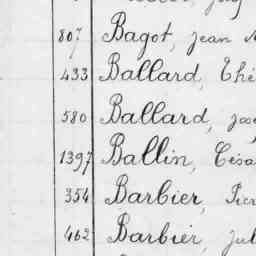 807 Bagot, Jean
433 Ballard, Thé
580 Ballard, Jose
1397 Ballin, Césa
354 Barbier, Pier
462 Barbier, Jul